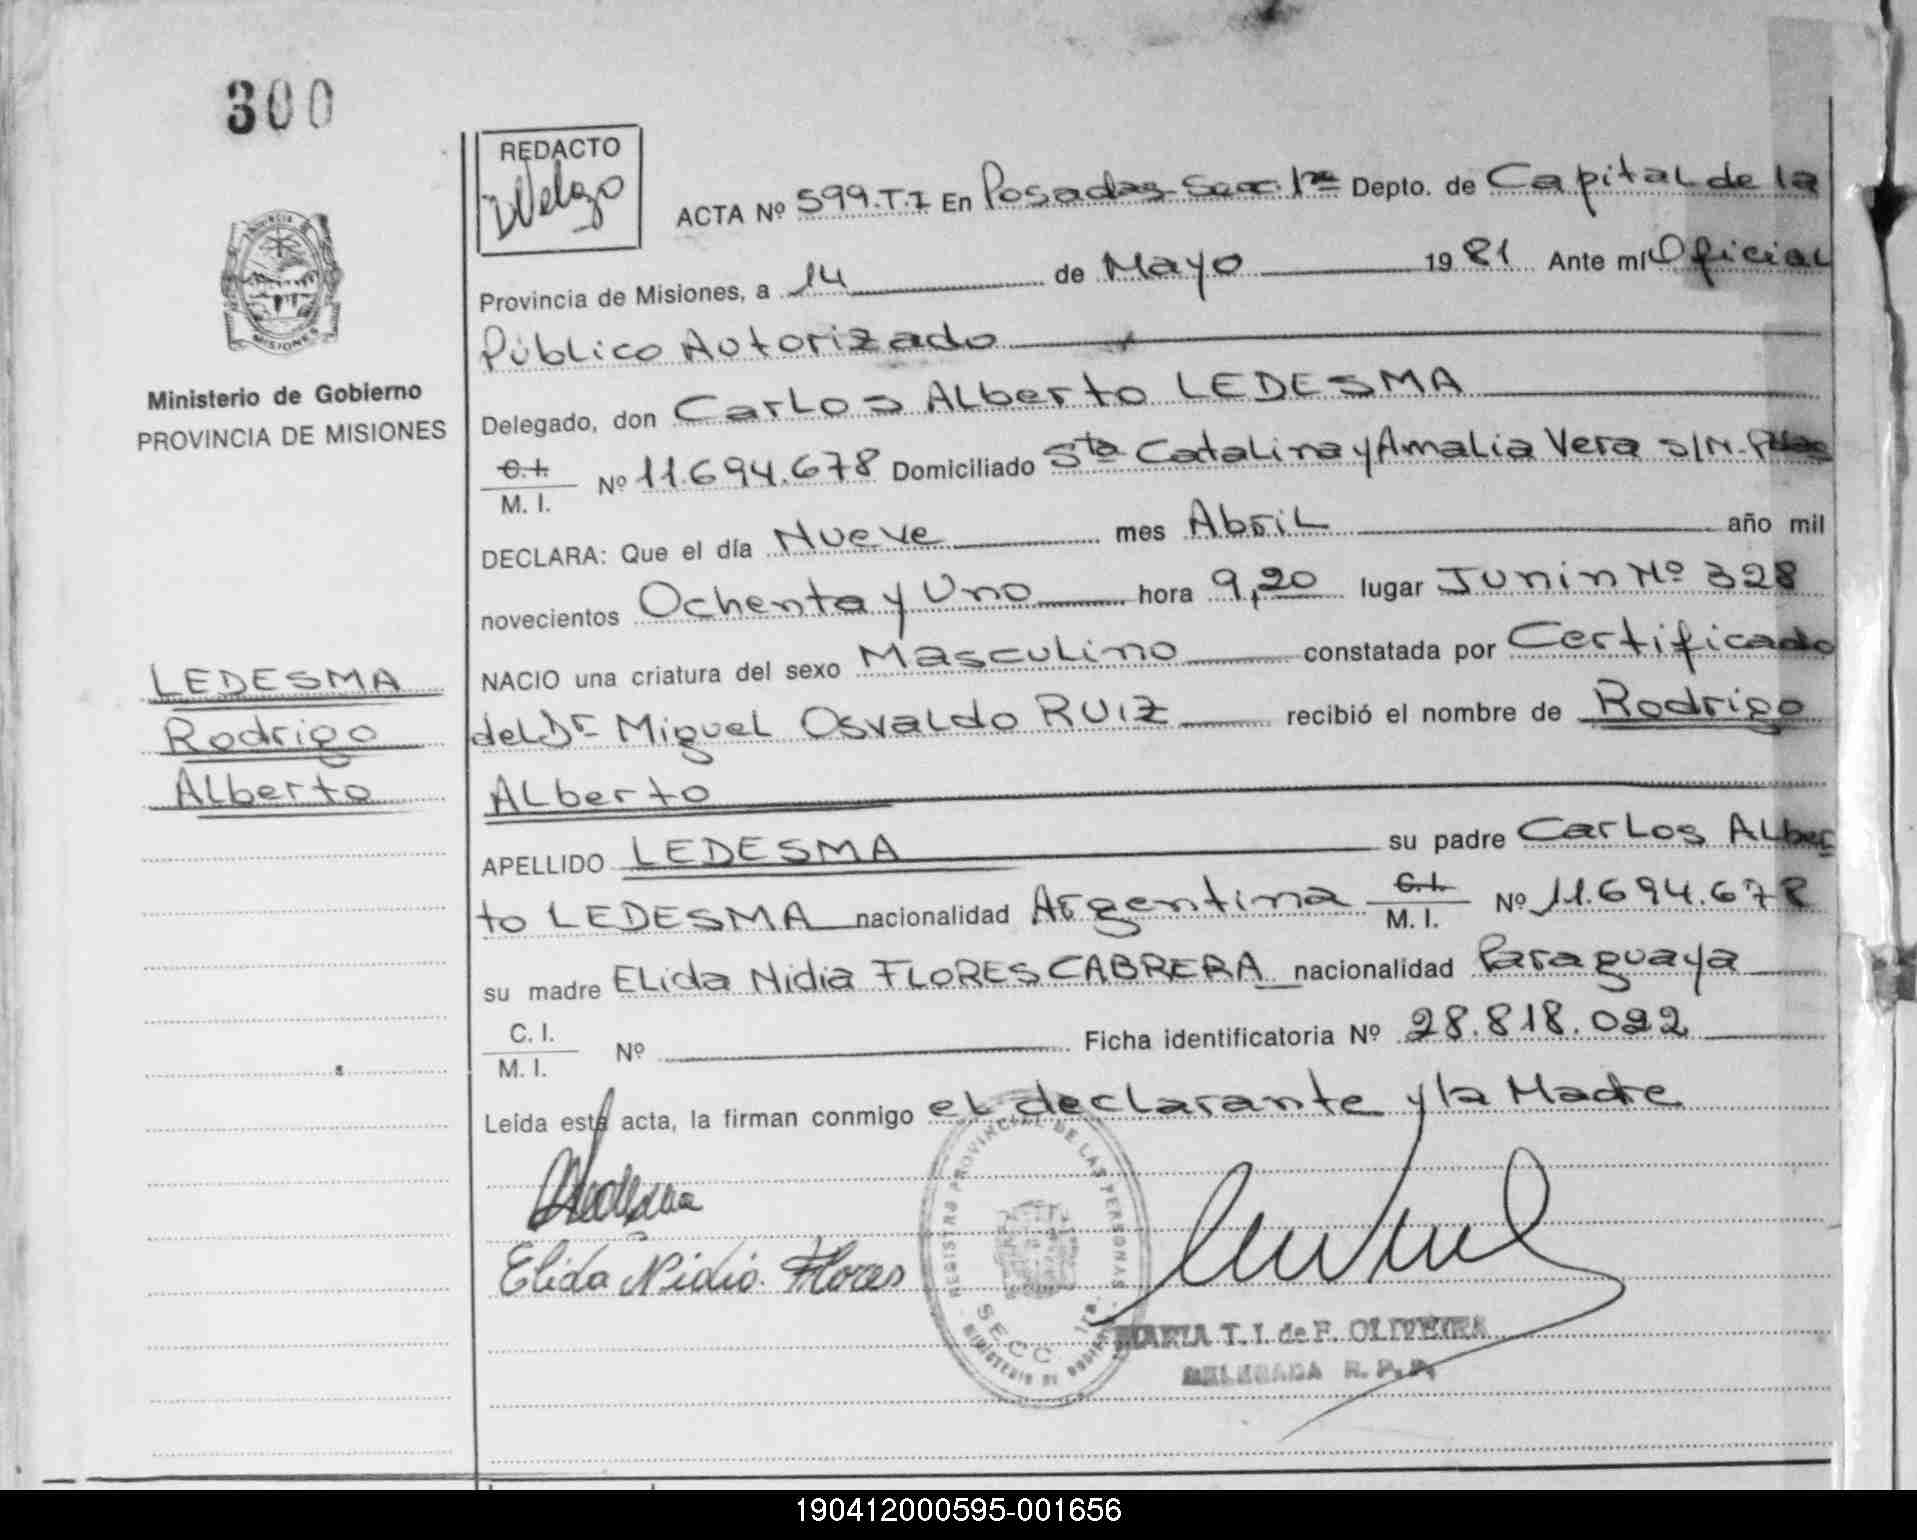 300
REDACTO
ACTA Nº 599.T.I En Posadas Secc. 1ra Depto. de Capital de la
Provincia de Misiones, a 14 de Mayo 1981 Ante mí Oficial
Público Autorizado
Delegado, don Carlos Alberto LEDESMA
C.I.
M. I. Nº 11.694.678 Domiciliado Sta Catalina y Amalia Vera s/N-Pdas
DECLARA: Que el día Nueve mes Abril año mil
novecientos Ochenta y Uno hora 9,20 lugar Junin Nº 328
NACIO una criatura del sexo Masculino constatada por Certificado
del Dr Miguel Osvaldo RUIZ recibió el nombre de Rodrigo
Alberto
APELLIDO LEDESMA su padre Carlos Alber
to LEDESMA nacionalidad Argentina C.I. M. I. Nº 11.694.678
su madre Elida Nidia FLORES CABRERA nacionalidad Paraguaya
C. I.
M. I. Nº Ficha identificatoria Nº 28.818.092
Leída esta acta, la firman conmigo el declarante y la Madre
Ledesma
Elida Nidia Flores
REGISTRO PROVINCIAL DE LAS PERSONAS
SECC 1ra.
MINISTERIO DE GOBIERNO
MARIA T. I. de F. OLIVEIRA
DELEGADA R. P. P.
PROVINCIA
MISIONES
Ministerio de Gobierno
PROVINCIA DE MISIONES
LEDESMA
Rodrigo
Alberto
190412000595-001656